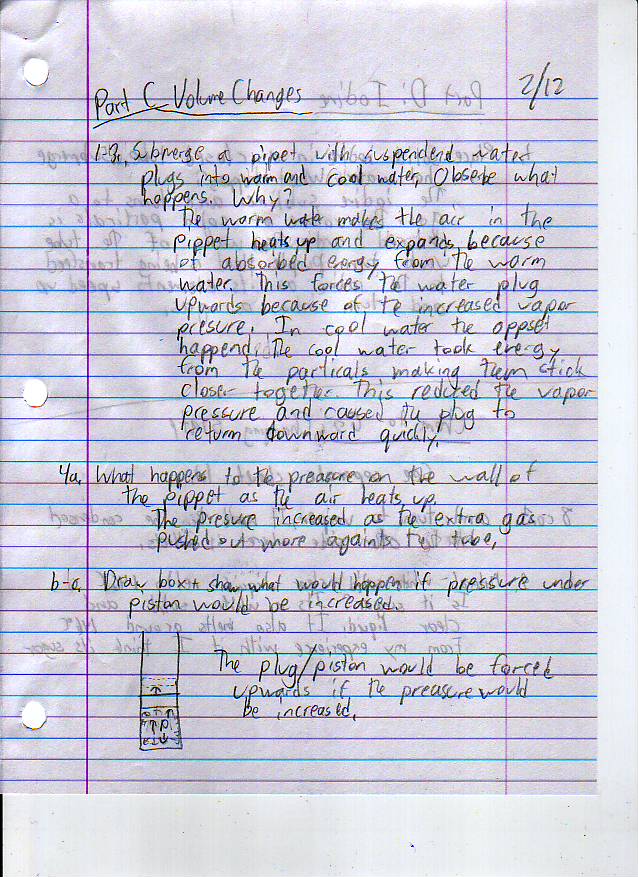 2/12
Part C Volume Changes
1-3, Submerge a pipet with suspended water
plugs into warm and cool water, Observe what
happens. Why?
The warm water makes the air in the
pippet heats up and expands, because
of absorbed energy from the warm
water. This forces the water plug
upwards because of the increased vapor
presure. In cool water the
happend. The cool water took energy
from the particals making them stick
closer together. This reduced the vapor
pressure and caused the plug to
return downward quickly.
4a. What happens to the preasure on the wall of
the pippet as the air heats up.
The presure increased as the extra gas
pushed out more againts the tube.
b-c. Draw box + show what would happen if pressure under
piston would be increased.
The plug/piston would be forced
upwards if the preasure would
be increased.